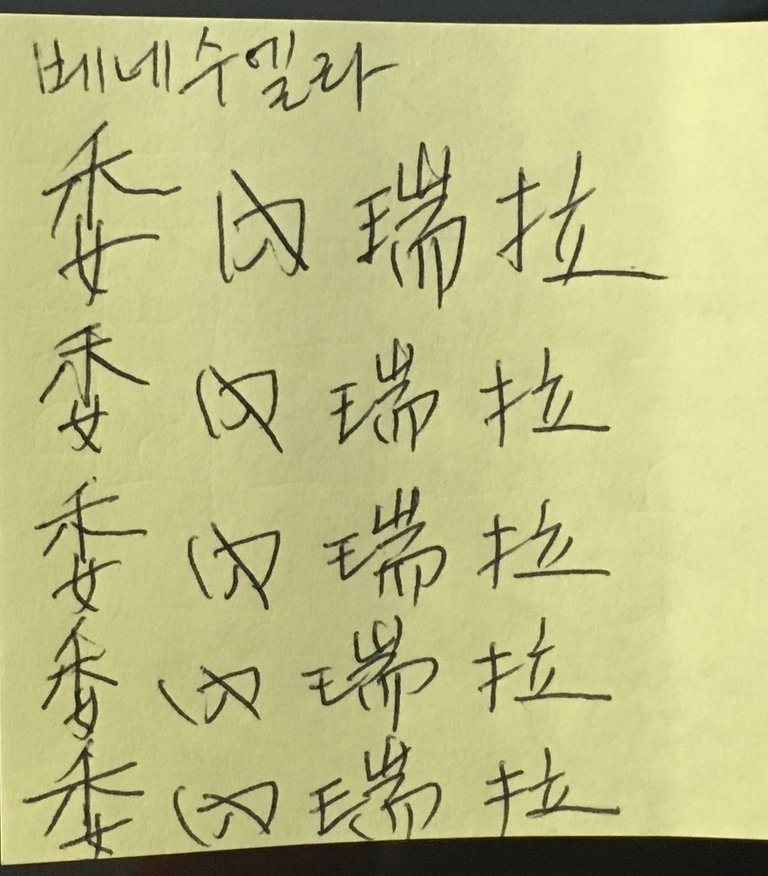 베네수엘라
委內瑞拉
委內瑞拉
委內瑞拉
委內瑞拉
委內瑞拉